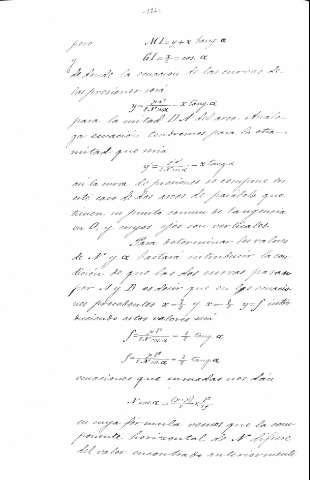 pero MI = y + x tang. α
y
de donde la ecuacion de las curvas de
las presiones será
y = - x tang. α
para la mitad DA del arco. Análo-
ga ecuación tendremos para la otra
mitad que será
y' = - x tang α
así la curva de presiones se compone en
este caso de dos arcos de parábola que
tienen un punto comun de tangencia
en O, y cuyos ejes son verticales.
Para determinar los valores
de N y α bastará introducir la con-
dicion de que las dos curvas pasan
por A y B es decir que en las ecuacio-
nes precedentes x = y x = y = f intro
duciendo estos valores será
f = - tang α
f = - tang α
ecuaciones que sumadas nos dán
N cos α =
en cuya fórmula vemos que la com-
ponente horizontal de N difiere
del valor encontrado anteriormente